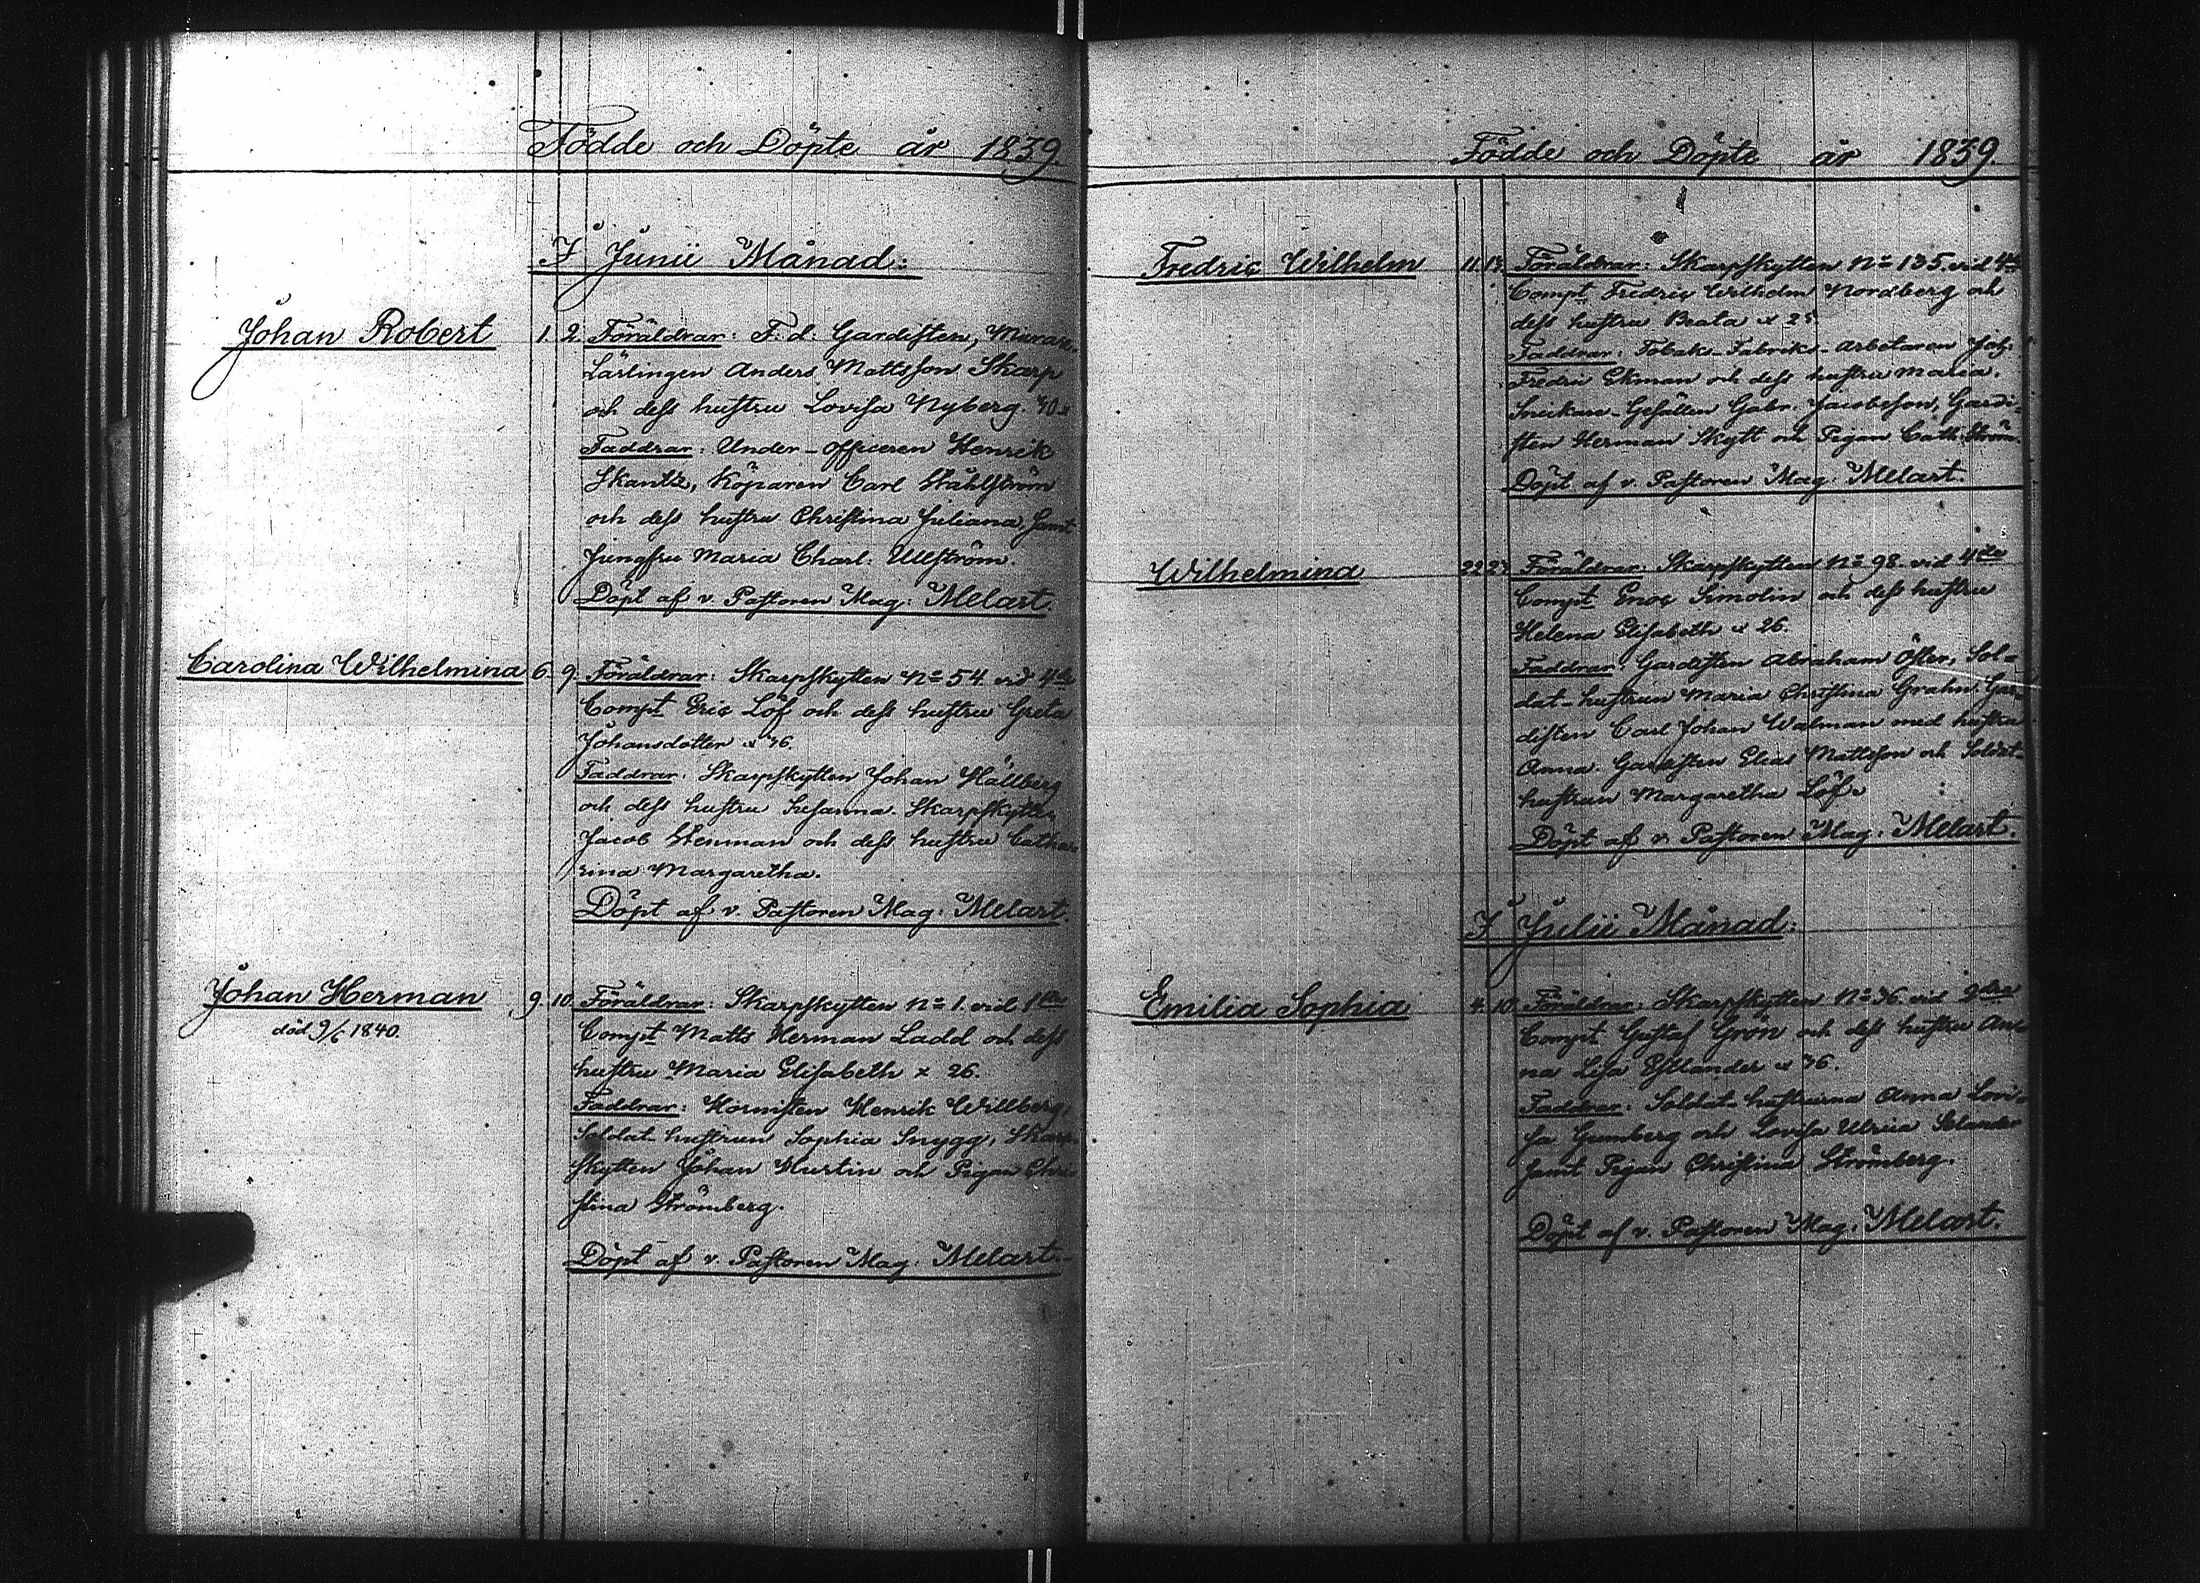 Födde och Döpte år 1839
I Junii Månad:
Johan Robert 1. 2. Föräldrar: F. d. Gardisten, Murare
Lärlingen Anders Mattsson Skarp
och dess hustru Lovisa Nyberg.
Faddrar: Under-officeren Henrik
Skantz, Köparen Carl Ståhlström
och dess hustru Christina Juliana, samt
Jungfru Maria Charl: Ullström.
Döpt af v. Pastoren Mag: Melart.
Carolina Wilhelmina 6. 9. Föräldrar: Skarpskytten No 54. vid 4de
Compt Eric Löf och dess hustru Greta
Johansdotter x 36.
Faddrar: Skarpskytten Johan Hällberg
och dess hustru Susanna. Skarpskytten
Jacob Stenman och dess hustru Catha-
rina Margaretha.
Döpt af v. Pastoren Mag: Melart.
Johan Herman 9. 10. Föräldrar: Skarpskytten No 1. vid 1sta
död 9/6 1840.
Compt Matts Herman Ladd och dess
hustru Maria Elisabeth x 26.
Faddrar: Hornisten Henrik Willberg,
Soldat hustrun Sophia Snygg, Skarp-
skytten Johan Hurtin och Pigan Chri-
stina Strömberg.
Döpt af v. Pastoren Mag: Melart.
Födde och Döpte år 1839.
Fredric Wilhelm 11. Föräldrar: Skarpskytten No 135. vid 4de
Compt Fredric Wilhelm Nordberg och
dess hustru Beata
Faddrar: Tobaks-Fabriks-Arbetaren Joh:
Fredric Ekman och dess hustru Maria.
Snickare-Gesällen Gabr. Jacobsson, Gardi-
sten Herman Skytt och Pigan Cath: Ström.
Döpt af v. Pastoren Mag: Melart.
Wilhelmina 22. 23. Föräldrar: Skarpskytten No 98. vid 4de
Compt Enoc Simolin och dess hustru
Helena Elisabeth x 26.
Faddrar: Gardisten Abraham Öster, Sol-
dat-hustrun Maria Christina Grahn. Gar-
disten Carl Johan Walman med hustru
Anna. Gardisten Elias Mattsson och Soldat-
hustrun Margaretha Löf.
Döpt af v. Pastoren Mag: Melart.
I Julii Månad:
Emilia Sophia 4. 10. Föräldrar: Skarpskytten No 36. vid
Compt Gustaf Grön och dess hustru An-
na Lisa Estlander x 36.
Faddrar: Soldat-hustrurna Anna Lovi-
sa Gumberg och Lovisa Ulrica Selander
samt Pigan Christina Strömberg.
Döpt af v. Pastoren Mag: Melart.